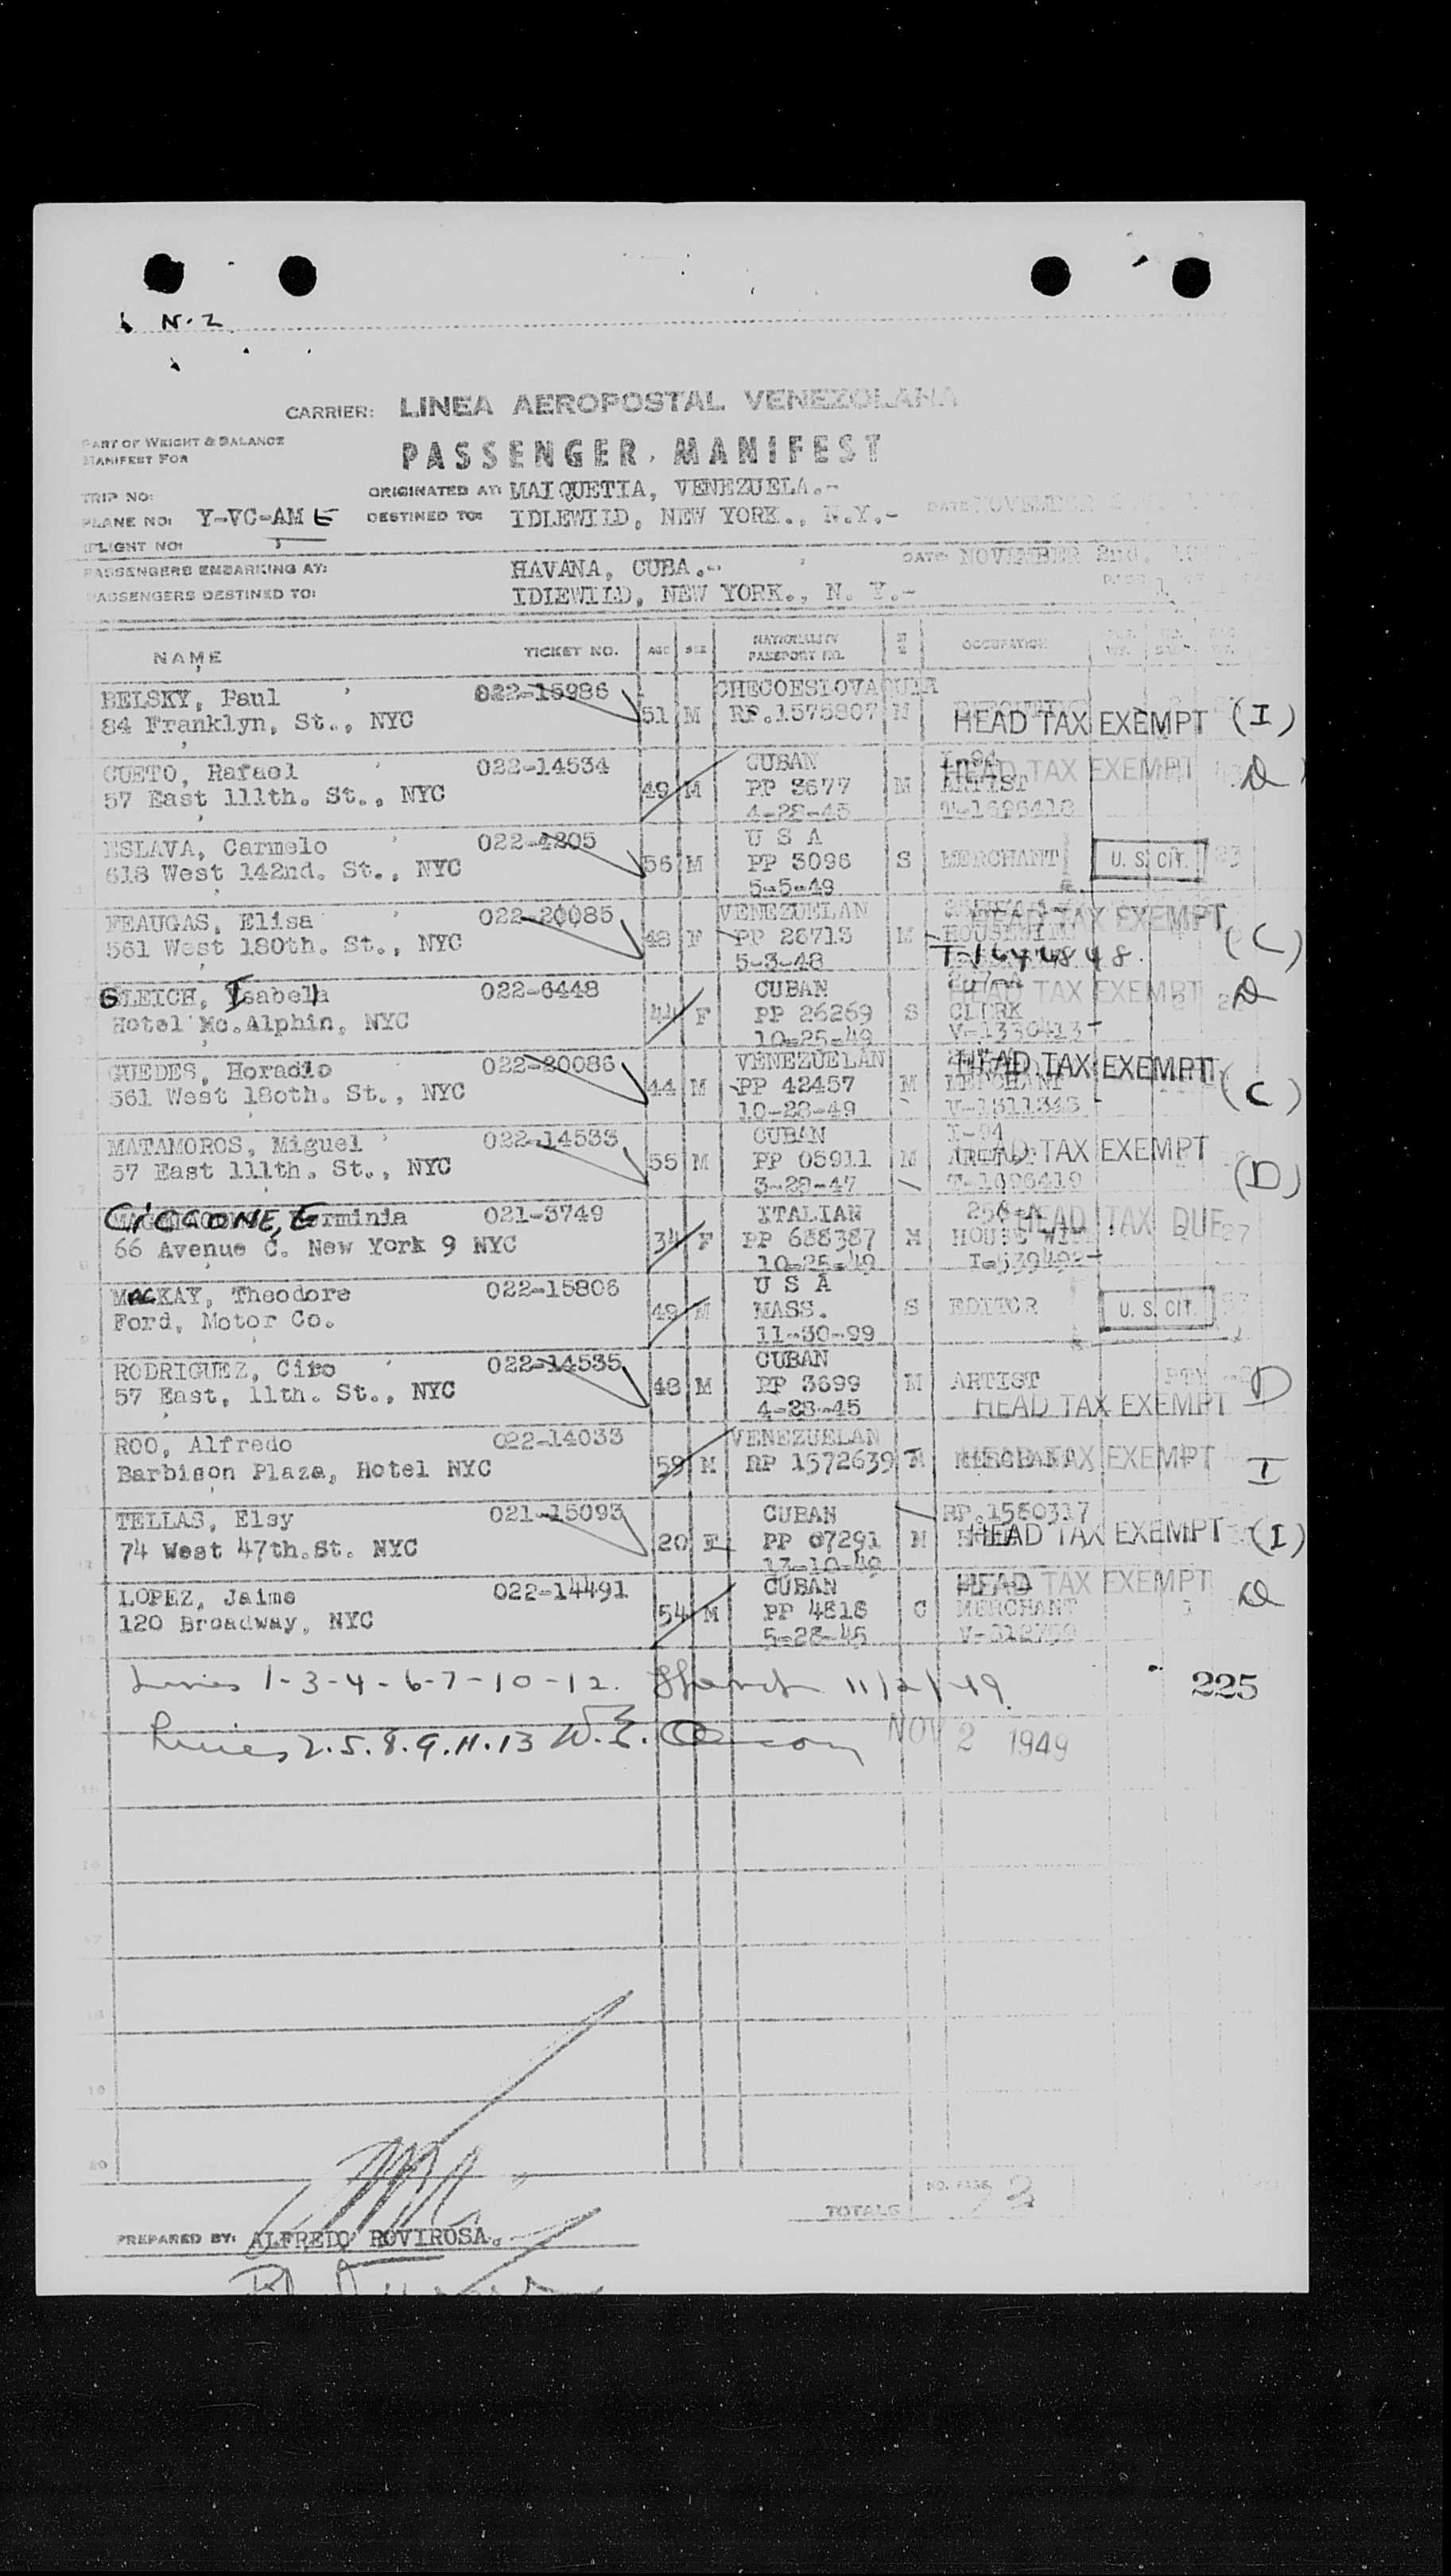 N.2
CARRIER: LINEA AEROPOSTAL VENEZOLANA
PART OF WEIGHT & BALANCE
MANIFEST FOR
PASSENGER MANIFEST
TRIP NO:
ORIGINATED AT: MAIQUETIA, VENEZUELA.-
PLANE NO: Y-VC-AME
DESTINED TO: IDLEWILD, NEW YORK., N.Y.-
DATE: NOVEMBER
FLIGHT NO:
PASSENGERS EMBARKING AT: HAVANA, CUBA.-
DATE NOVEMBER 2nd.
PASSENGERS DESTINED TO: IDLEWILD, NEW YORK., N. Y.-
PAGE 1
NAME TICKET NO. AGE SEX NATIONALITY PASSPORT NO. OCCUPATION
BELSKY, Paul 022-15986 CHECOESLOVAQUIA
84 Franklyn, St., NYC 51 M RP.1575807 M HEAD TAX EXEMPT (I)
CUETO, Rafael 022-14534 CUBAN I-94 HEAD TAX EXEMPT D
57 East 111th. St., NYC 49 M PP 3677 M ARTIST
4-28-45 T-1696418
ESLAVA, Carmelo 022-4205 U S A
618 West 142nd. St., NYC 56 M PP 3096 S MERCHANT U. S. CIT.
5-5-49
FEAUGAS, Elisa 022-20085 VENEZUELAN HEAD TAX EXEMPT
561 West 180th. St., NYC 48 F PP 26713 M HOUSEWIFE (C)
5-3-48 T-1644848.
GLEICH, Isabela 022-6448 CUBAN HEAD TAX EXEMPT D
Hotel Mc.Alphin, NYC 44 F PP 26269 S CLERK
10-25-49 V-1330413
GUEDES, Horacio 022-20086 VENEZUELAN HEAD TAX EXEMPT
561 West 180th. St., NYC 44 M PP 42457 M MERCHANT (C)
10-28-49 V-1311343
MATAMOROS, Miguel 022-14533 CUBAN I-94
57 East 111th. St., NYC 55 M PP 05911 M HEAD TAX EXEMPT
3-29-47 T-1696419 (D)
CICCONE, Erminia 021-3749 ITALIAN HEAD TAX DUE
66 Avenue C. New York 9 NYC 34 F PP 688387 M HOUSE WIFE
10-25-49 I-539492
MacKAY, Theodore 022-15806 U S A
Ford, Motor Co. 49 M MASS. S EDITOR U. S. CIT.
11-30-99
RODRIGUEZ, Ciro 022-14535 CUBAN
57 East, 11th. St., NYC 48 M PP 3699 M ARTIST D
4-28-45 HEAD TAX EXEMPT
ROO, Alfredo 022-14033 VENEZUELAN
Barbison Plaza, Hotel NYC 59 M RP 1572639 M HEAD TAX EXEMPT I
TELLAS, Elsy 021-15093 CUBAN RP.1580317
74 West 47th.St. NYC 20 F PP 07291 M HEAD TAX EXEMPT (I)
17-10-49
LOPEZ, Jaime 022-14491 CUBAN HEAD TAX EXEMPT D
120 Broadway, NYC 54 M PP 4818 C MERCHANT
5-28-45 V-312759
Lines 1-3-4-6-7-10-12. 11/2/49. 225
Lines 2.5.8.9.11.13 W.E. NOV 2 1949
20
TOTALS NO. PASS.
PREPARED BY: ALFREDO ROVIROSA.